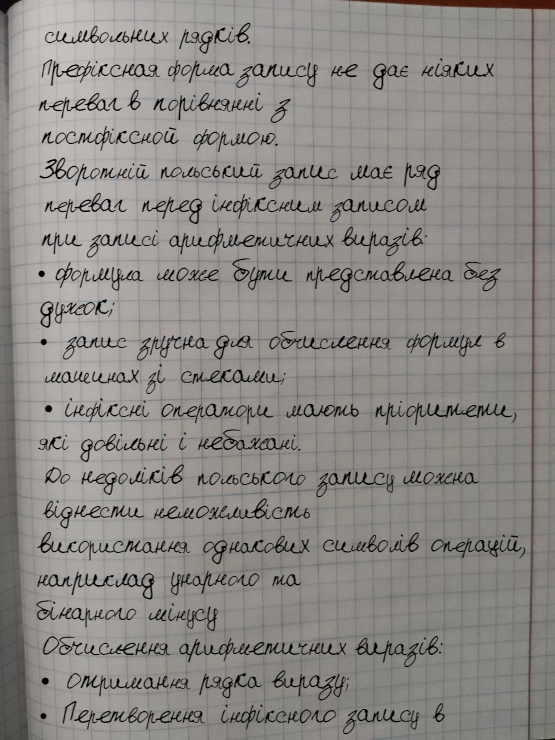 символьних рядків.
Префіксная форма запису не дає ніяких
переваг в порівнянні з
постфіксной формою.
Зворотній польський запис має ряд
переваг перед інфіксним записом
при записі арифметичних виразів:
• формула може бути представлена без
дужок;
• запис зручна для обчислення формул в
машинах зі стеками;
• інфіксні оператори мають пріоритети,
які довільні і небажані.
До недоліків польського запису можна
віднести неможливість
використання однакових символів операцій,
наприклад унарного та
бінарного мінусу
Обчислення арифметичних виразів:
• Отримання рядка виразу;
• Перетворення інфіксного запису в